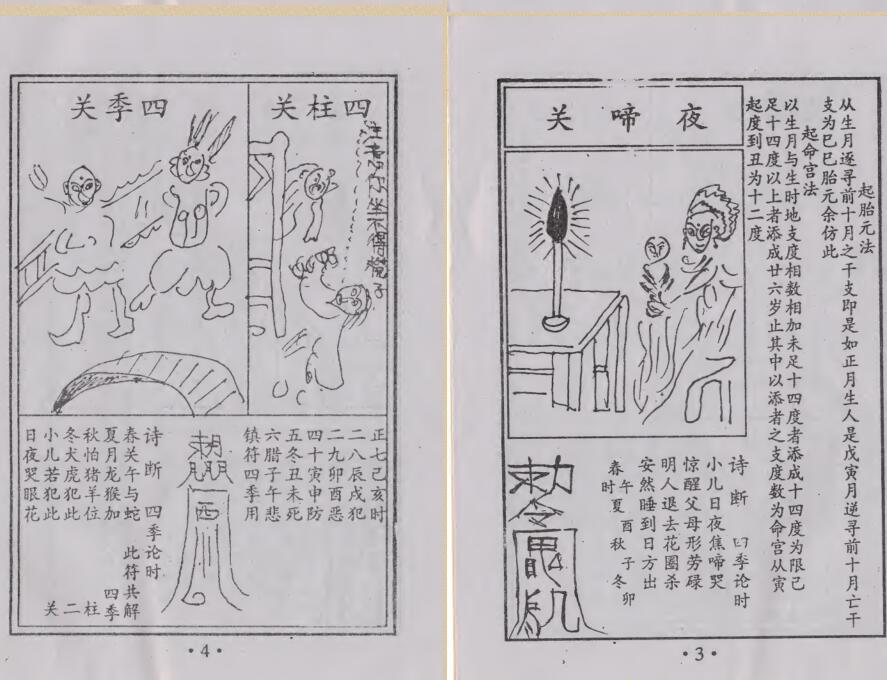 起胎元法
从生月逐寻前十月之干支即是如正月生人是戊寅月逆寻前十月亡干
支为已巳胎元余仿此
起命宫法
以生月与生时地支度相数相加未足十四度者添成十四度为限已
足十四度以上者添成廿六岁止其中以添者之支度数为命宫从寅
起度到丑为十二度
夜啼关
诗断 四季论时
小儿日夜焦啼哭
惊醒父母形劳碌
明人退去花圈杀
安然睡到日方出
春午夏酉秋子冬卯
时
敕令
·3·
四柱关
坐不得凳子
四季关
正七己亥时
二八辰戌犯
二九卯酉恶
四十寅申防
五冬丑未死
六腊子午悲
镇符四季用
诗断 四季论时
春关午与蛇 此符共解
夏月龙猴加 四季
秋怕猪羊位 柱
冬犬虎犯此 二
小儿若犯此 关
日夜哭眼花
·4·